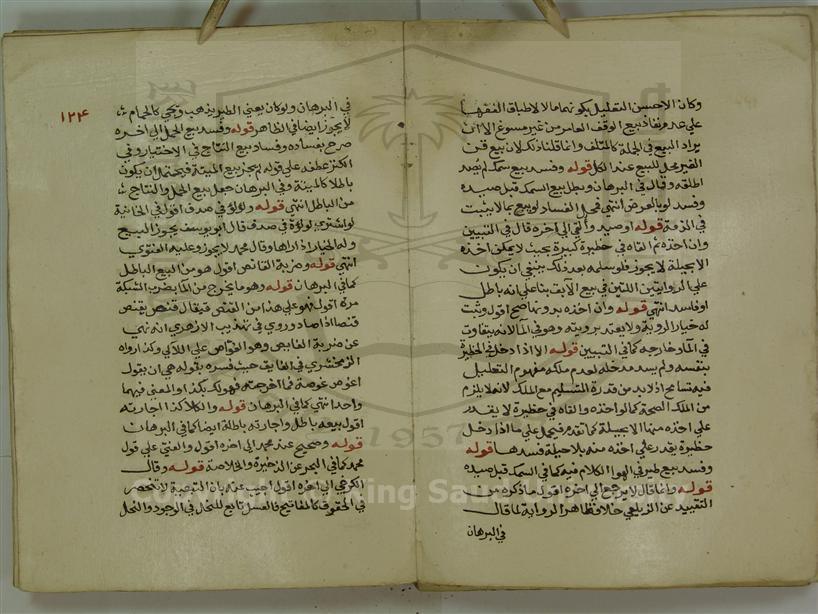 وكان الاحسن التعليل بكونهما مالا لاطباق الفقهاء
على عدم نفاذ بيع الوقف العامر من غير مسوغ الا ان
يراد البيع في الجملة كالمتلف وانما قلنا ذلك لان بيع قن
الغير محل للبيع عند الكل قوله وفسد بيع سمك لم يصد
اطلقه وقال في البرهان وبطل بيع السمك قبل صيده
وفسد لو بالعرض انتهى فمحل الفساد لو بيع بما لا يثبت
في الذمة قوله او صيد والقي الى اخره قال في التبيين
وان اخذه ثم القاه في حظيرة كبيرة بحيث لا يمكن اخذه
الا بحيلة لا يجوز فلو سلمه بعد ذلك ينبغي ان يكون
على الروايتين اللتين في بيع الآبق بناء على انه باطل
او فاسد انتهى قوله وان اخذه بدونها صح اقول وثبت
له خيار الروية ولا يعتد برويته وهو في الماء لانه يتفاوت
في الماء وخارجه كما في التبيين قوله الا اذا دخل الحظيرة
بنفسه ولم يسد مدخله لعدم ملكه مفهوم التعليل
فيه تسامح اذ لابد من قدرة التسليم مع الملك لانه لا يلزم
من الملك الصحة كما لو اخذه والقاه في حظيرة لا يقدر
على اخذه منها الا بحيلة كما تقدم فيحمل على ما اذا دخل
حظيرة يقدر على اخذه منه بلا حيلة فسدها قوله
وفسد بيع طير في الهوا الكلام فيه كما في السمك قبل صيده
قوله وانما قال لا يرجع الى اخره اقول ما ذكره من
التقييد عن الزيلعي خلاف ظاهر الرواية لما قال
في البرهان
١٢٤
في البرهان ولو كان يعني الطير يذهب ويجي كالحمام
لا يجوز ايضا في الظاهر قوله وفسد بيع الحمل الى اخره
صرح بفساده وفساد بيع النتاج في الاختيار وفي
الكنز عطفه على قوله لم يجز بيع الميتة فيحتمل ان يكون
باطلا كالميتة وفي البرهان جعل بيع الحمل والنتاج
من الباطل انتهى قوله ولؤلؤ في صدف اقول في الخانية
لو اشترى لؤلؤة في صدف قال ابو يوسف يجوز البيع
وله الخيار اذا راها وقال محمد لا يجوز وعليه الفتوى
انتهى قوله وضربة القانص اقول هو من البيع الباطل
كما في البرهان قوله وهو ما يخرج من الماء بضرب الشبكة
مرة اقول فهو على هذا من القنص فيقال قنص يقنص
قنصا اذا صاد وروي في تهذيب الازهري انه نهى
عن ضربة الغايص وهو الغواص على اللآلي وكذا رواه
الزمخشري في الفايق حيث فسره بقوله هي ان يقول
اغوص غوصة فما اخرجته فهو لك بكذا والمعنى فيهما
واحد انتهى كما في البرهان قوله والكلا كذا اجارته
اقول بيعه باطل واجارته باطلة ايضا كما في البرهان
قوله وصحيح عند محمد الى اخره اقول والفتوى على قول
محمد كما في البحر عن الذخيرة والخلاصة قوله وقال
الكرخي الى اخره اقول اجيب عنه بان التبعية لا تنحصر
في الحقوق كالمفاتيح فالعسل تابع للنحل في الوجود والنحل
Copyright © King Saud University
1957